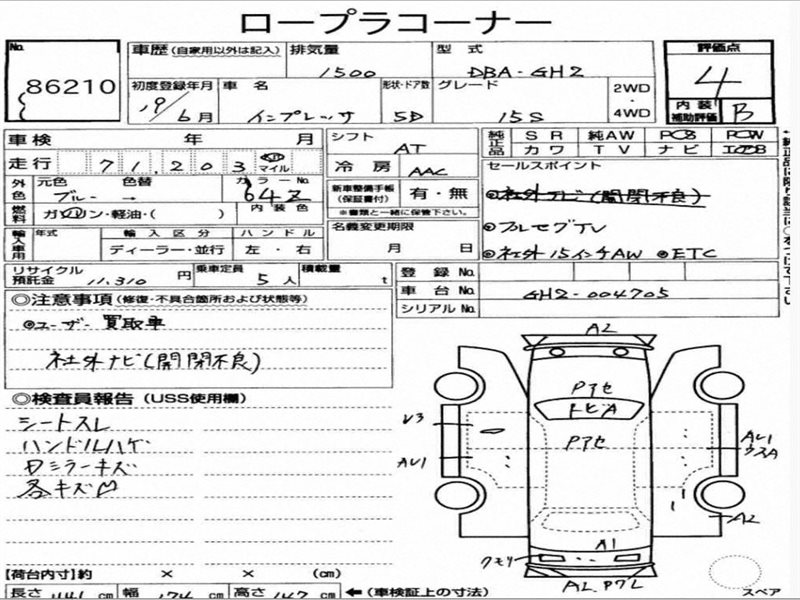 ロープラコーナー
No. 86210
車歴(自家用以外は記入) 排気量 1500 型式 DBA-GH2
評価点 4
初度登録年月 19/6月 車名 インプレッサ 形状・ドア数 5D グレード 15S 2WD・4WD
内装補助評価 B
車検 年 月 シフト AT
純正品 SR 純AW PS PW
カワ TV ナビ エアB
走行 71,203 マイル 冷房 AAC
セールスポイント
外色 元色 ブルー 色替 → カラーNo 64Z
新車整備手帳(保証書付) 有・無
※書類と一緒に保管下さい。
社外ナビ(開閉不良)
燃料 ガソリン・軽油・( ) 内装色
◎フルセグTV
輸入車用 年式 輸入区分 ハンドル 名義変更期限
ディーラー・並行 左・右 月 日
◎社外15インチAW ◎ETC
リサイクル預託金 11,310円 乗車定員 5人 積載量 t
登録No.
車台No. GH2-004705
シリアルNo.
◎注意事項(修復・不具合箇所および状態等)
◎ユーザー買取車
社外ナビ(開閉不良)
◎検査員報告(USS使用欄)
シートスレ
ハンドルハゲ
ミラーキズ
各キズ凹
A2
Pアセ
トビA
Pアセ
U3
AU1
AU1
A2
A1
クモリ
スペア
【荷台内寸】約 × × (cm)
長さ 441 cm 幅 174 cm 高さ 147 cm ←(車検証上の寸法)